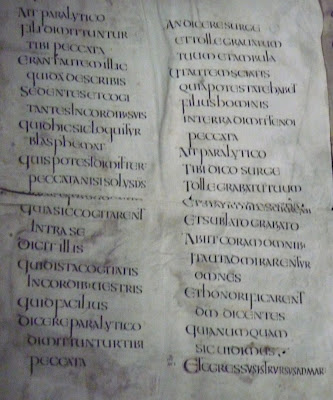 AIT PARALYTICO
FILI DIMITTUNTUR
TIBI PECCATA
ERANT AUTEM ILLIC
QUIDA DESCRIBIS
SEDENTES ET COGI
TANTES IN CORDIB SVIS
QUID HIC SIC LOQUITVR
BLASPHEMAT
QUIS POTEST DIMITTERE
PECCATA NISI SOLVS DS
QUIA SIC COGITARENT
INTRA SE
DICIT ILLIS
QUID ISTA COGITATIS
IN CORDIB UESTRIS
QUID FACILIUS
DICERE PARALYTICO
DIMITTUNTUR TIBI
PECCATA
AN DICERE SURGE
ET TOLLE GRAUATUM
TUUM ET AMBULA
UT AUTEM SCIATIS
QUIA POTESTATE HABET
FILIUS HOMINIS
IN TERRA DIMITTENDI
PECCATA
AIT PARALYTICO
TIBI DICO SURGE
TOLLE GRABATU TUUM
ET SUBLATO GRABATO
ABIIT CORAM OMNIB
ITA UT ADMIRARENTVR
OMNES
ET HONORIFICARENT
DM DICENTES
QUIA NUMQUAM
SIC UIDIMUS
ET EGRESSVS EST RVRSVS AD MARE